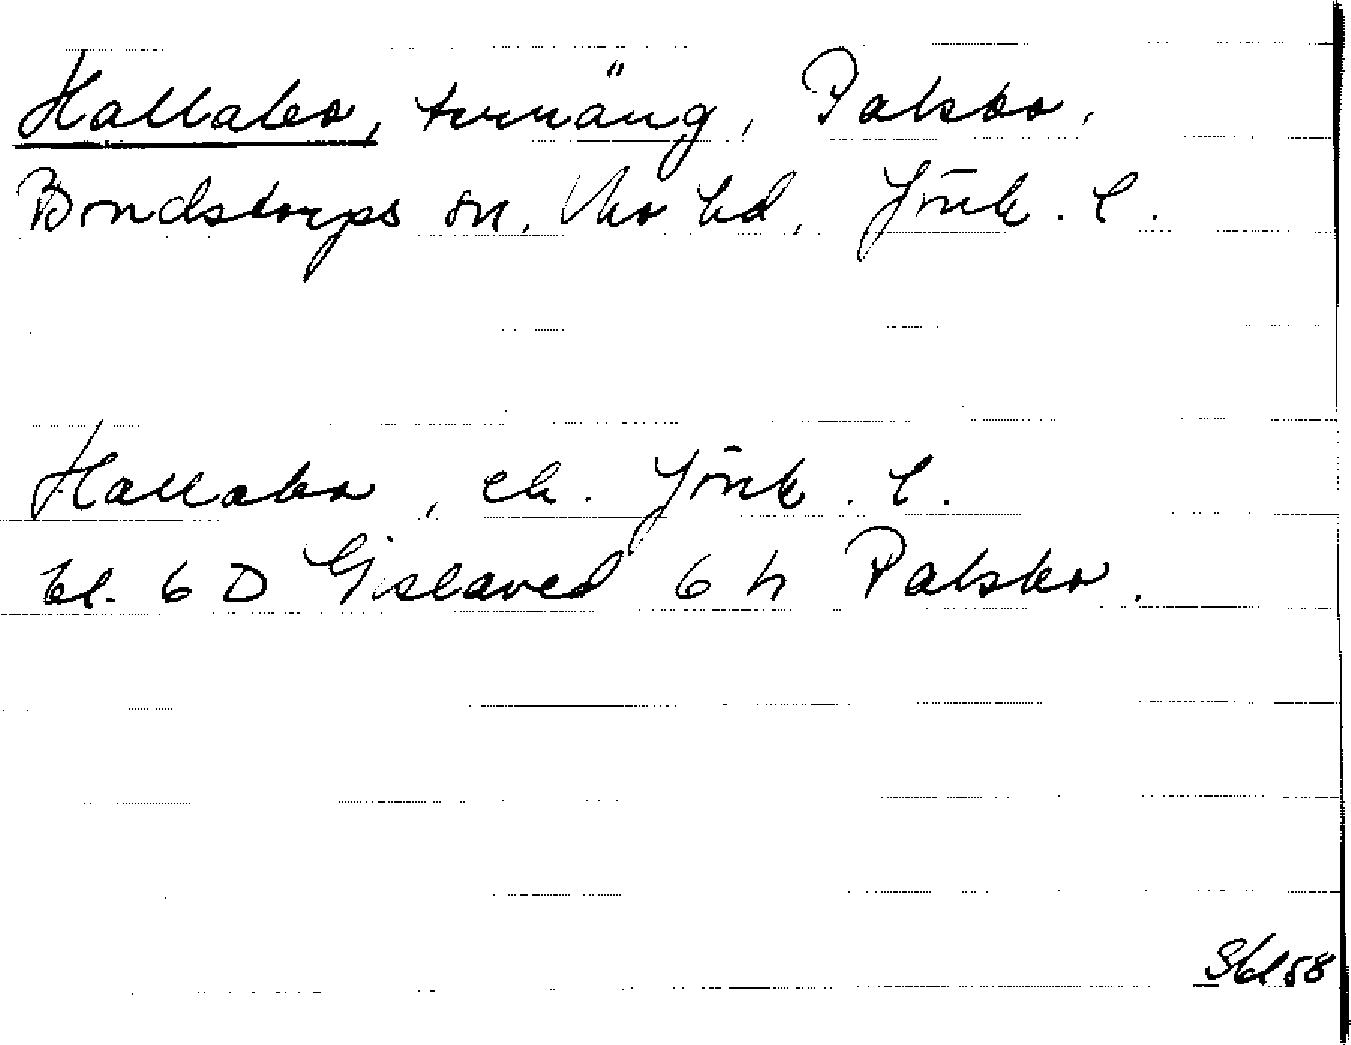 Hallabo, turräng, Palsbo,
Bondstorps sn, Mo hd, Jönk. l.
Hallabo, ek. Jönk. l.
bl. 6 D Gislaved 6 h Palsbo.
Sbl 58